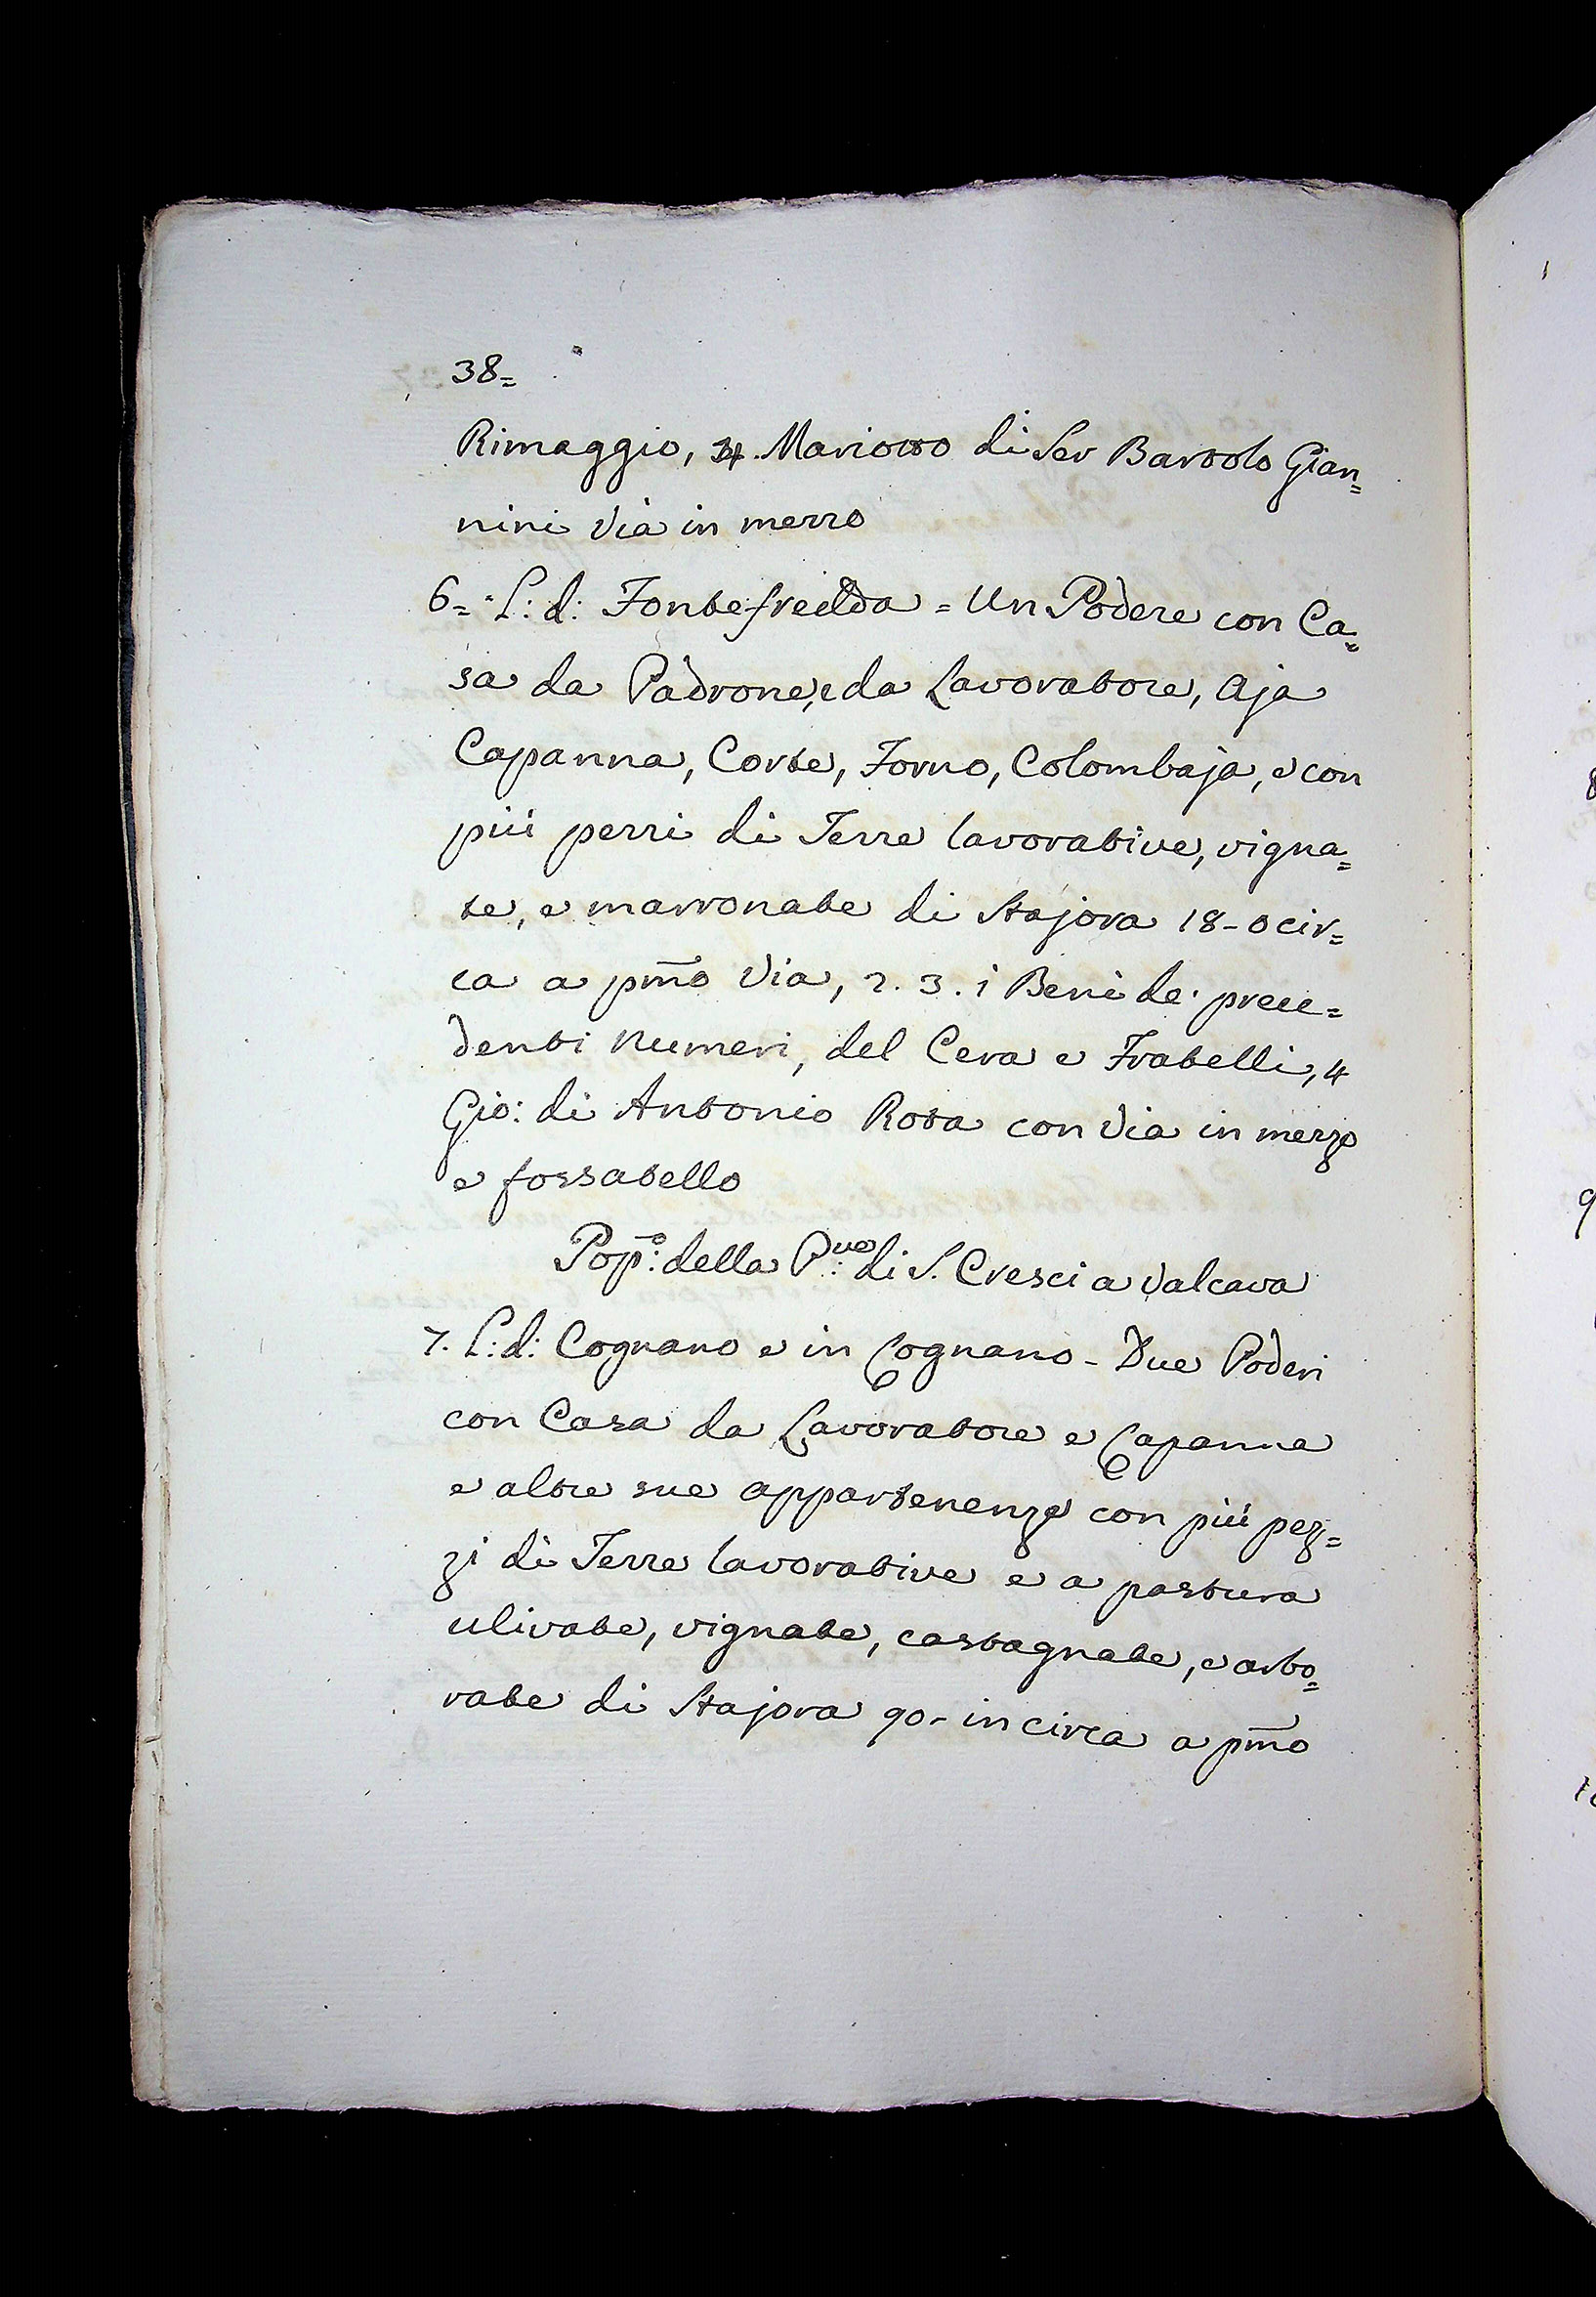 38=
Rimaggio, 4. Mariotto di Ser Bartolo Gian=
nini Via in mezzo
6= L: d: Fontefredda = Un Podere con Ca=
sa da Padrone, e da Lavoratore, Aja
Capanna, Corte, Forno, Colombaja, e con
più pezzi di Terre lavorative, vigna=
te, e marronate di Stajora 18 - o cir=
ca a pm̄o Via, 2. 3. i Beni de' prece=
denti Numeri, del Cera e Fratelli, 4
Gio: di Antonio Rosa con Via in mezzo
e fossatello
Pop.o: della P.ve: di S. Cresci a Valcava
7. L: d: Cognano e in Cognano - Due Poderi
con Casa da Lavoratore e Capanna
e altre sue appartenenze con più pez=
zi di Terre lavorative e a pastura
ulivate, vignate, castagnate, e arbo=
rate di Stajora 90 - in circa a pm̄o